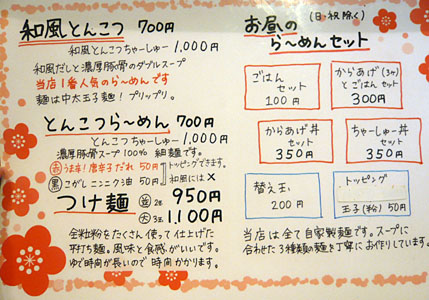 和風とんこつ 700円
和風とんこつちゃーしゅー 1,000円
和風だしと濃厚豚骨のダブルスープ
当店1番人気のらーめんです
麺は中太玉子麺!プリップリ。
とんこつら〜めん 700円
とんこつちゃーしゅー 1,000円
濃厚豚骨スープ100% 細麺です。
赤 うま辛!唐辛子だれ 50円
黒 こがしニンニク油 50円
トッピングできます。
和風には×
つけ麺 並 2玉 950円
大 3玉 1,100円
全粒粉をたくさん使って仕上げた
平打ち麺。風味と食感がいいです。
ゆで時間が長いので時間かかります。
お昼の (日・祝除く)
ら〜めんセット
ごはん
セット
100円
からあげ(3ヶ)
とごはんセット
300円
からあげ丼
セット
350円
ちゃーしゅー丼
セット
350円
替え玉
200円
トッピング
玉子(粉) 50円
当店は全て自家製麺です。スープに
合わせた3種類の麺を丁寧にお作りしています。